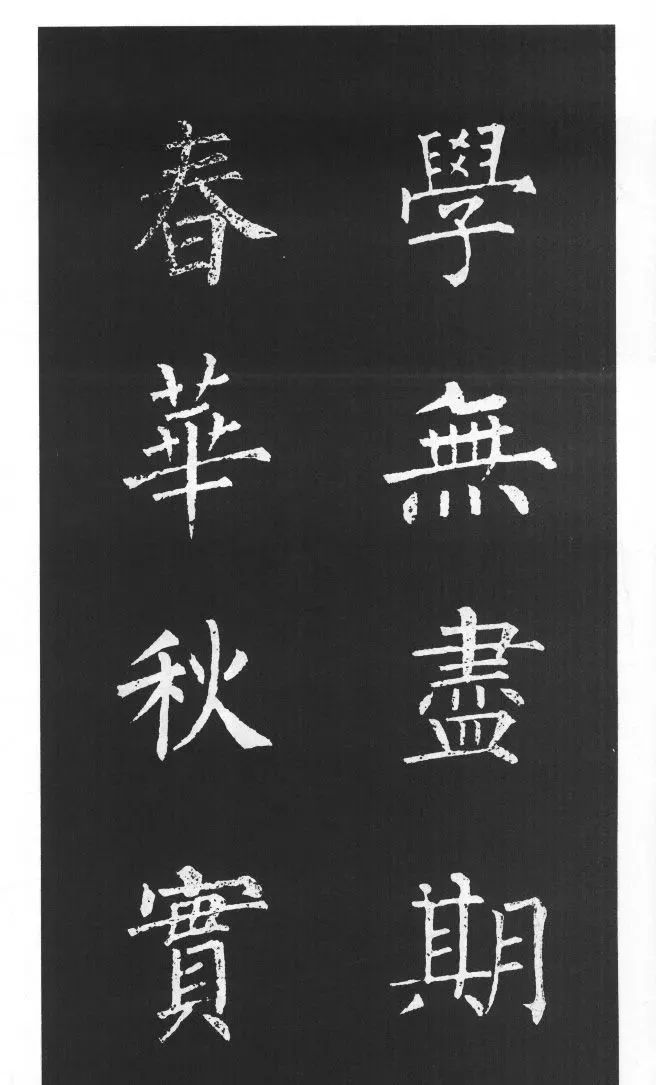 學無盡期
春華秋實